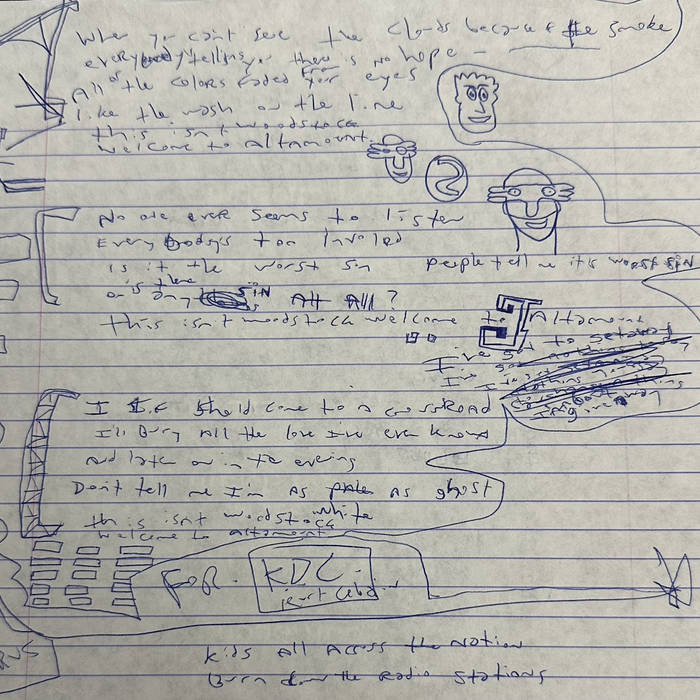 When you can't see the clouds because of the smoke
everybody telling you there is no hope -
All of the colors faded from your eyes
like the wash on the line
this isn't woodstock
Welcome to altamount.
2
No one ever seems to listen
Every Body's too Involed
is it the worst sin people tell me it is worst sin
or is there any SIN At All?
this isn't woodstock welcome to Altamont
I've got to
I
I If I should come to a crossRoad
I'll Bury All the love I've ever known
And later on in the evening
Don't tell me I'm as pale as ghost
white
this isn't woodstock
Welcome to altamont
FOR. KDC.
Kids All Across the Nation
Burn down the Radio Stations